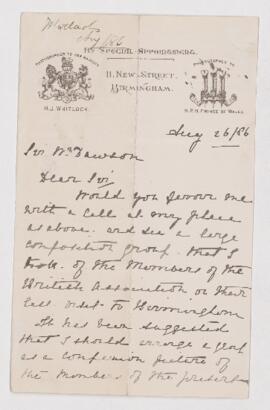 Whitlock
Aug /86
By Special Appointment.
Photographer to Her Majesty
Photographer to
11, New Street,
Birmingham.
H.J. Whitlock
H.R.H. Prince of Wales
Aug 26/86
Sir Wm Dawson
Dear Sir/
Would you favour me
with a call at my place
as above. and see a large
composition group. that I
took. of the Members of the
British Association on their
last visit to Birmingham
It has been suggested
that I should arrange a
as a companion picture of
the members of the present